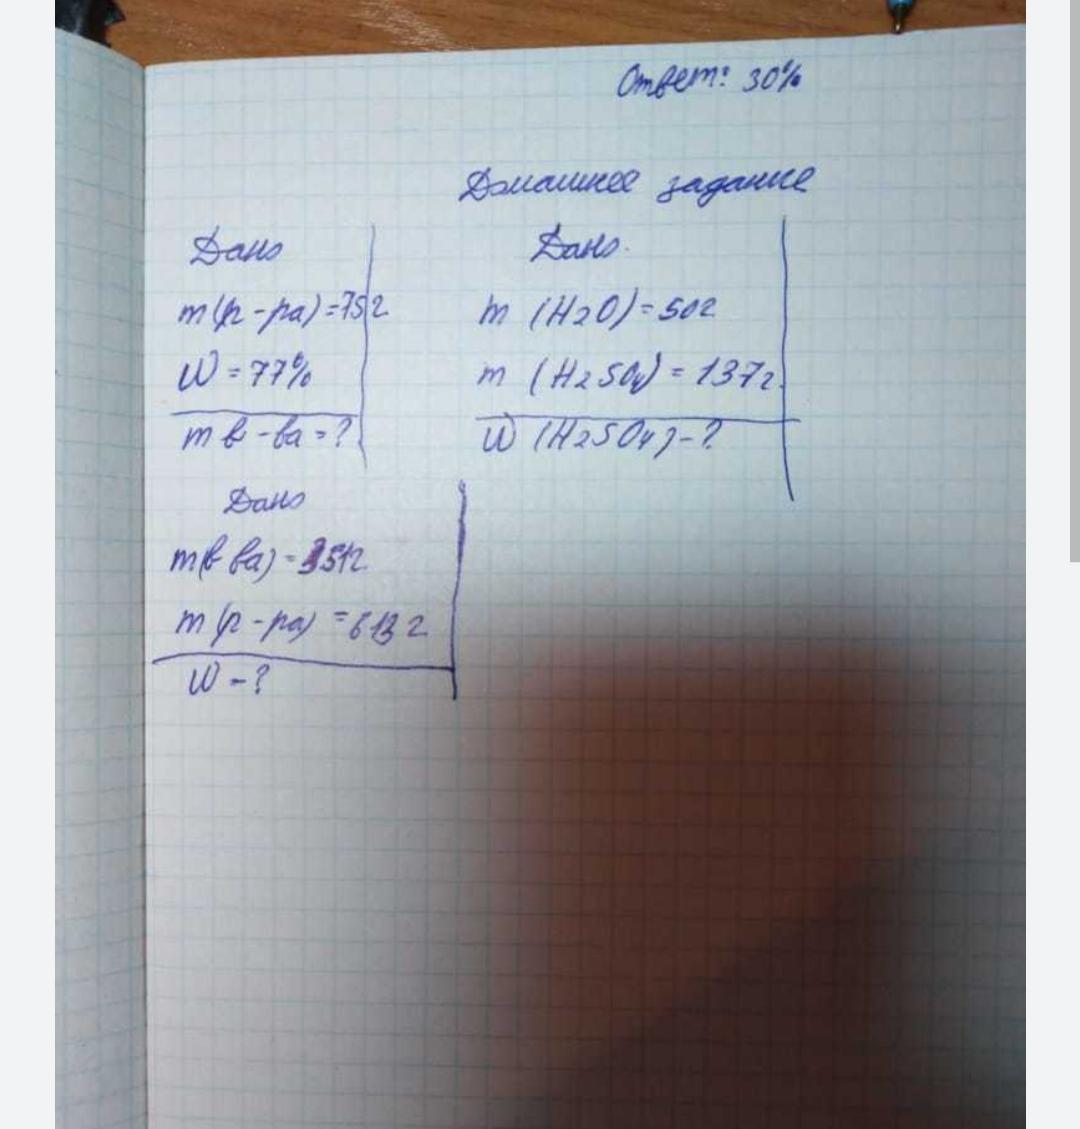 Ответ: 30%
Домашнее задание
Дано
m(р-ра)=75г
W=77%
m в-ва=?
Дано.
m (H2O)=50г
m (H2SO4)=137г
W (H2SO4)-?
Дано
m(в ва)-351г
m(р-ра)=613г
W-?